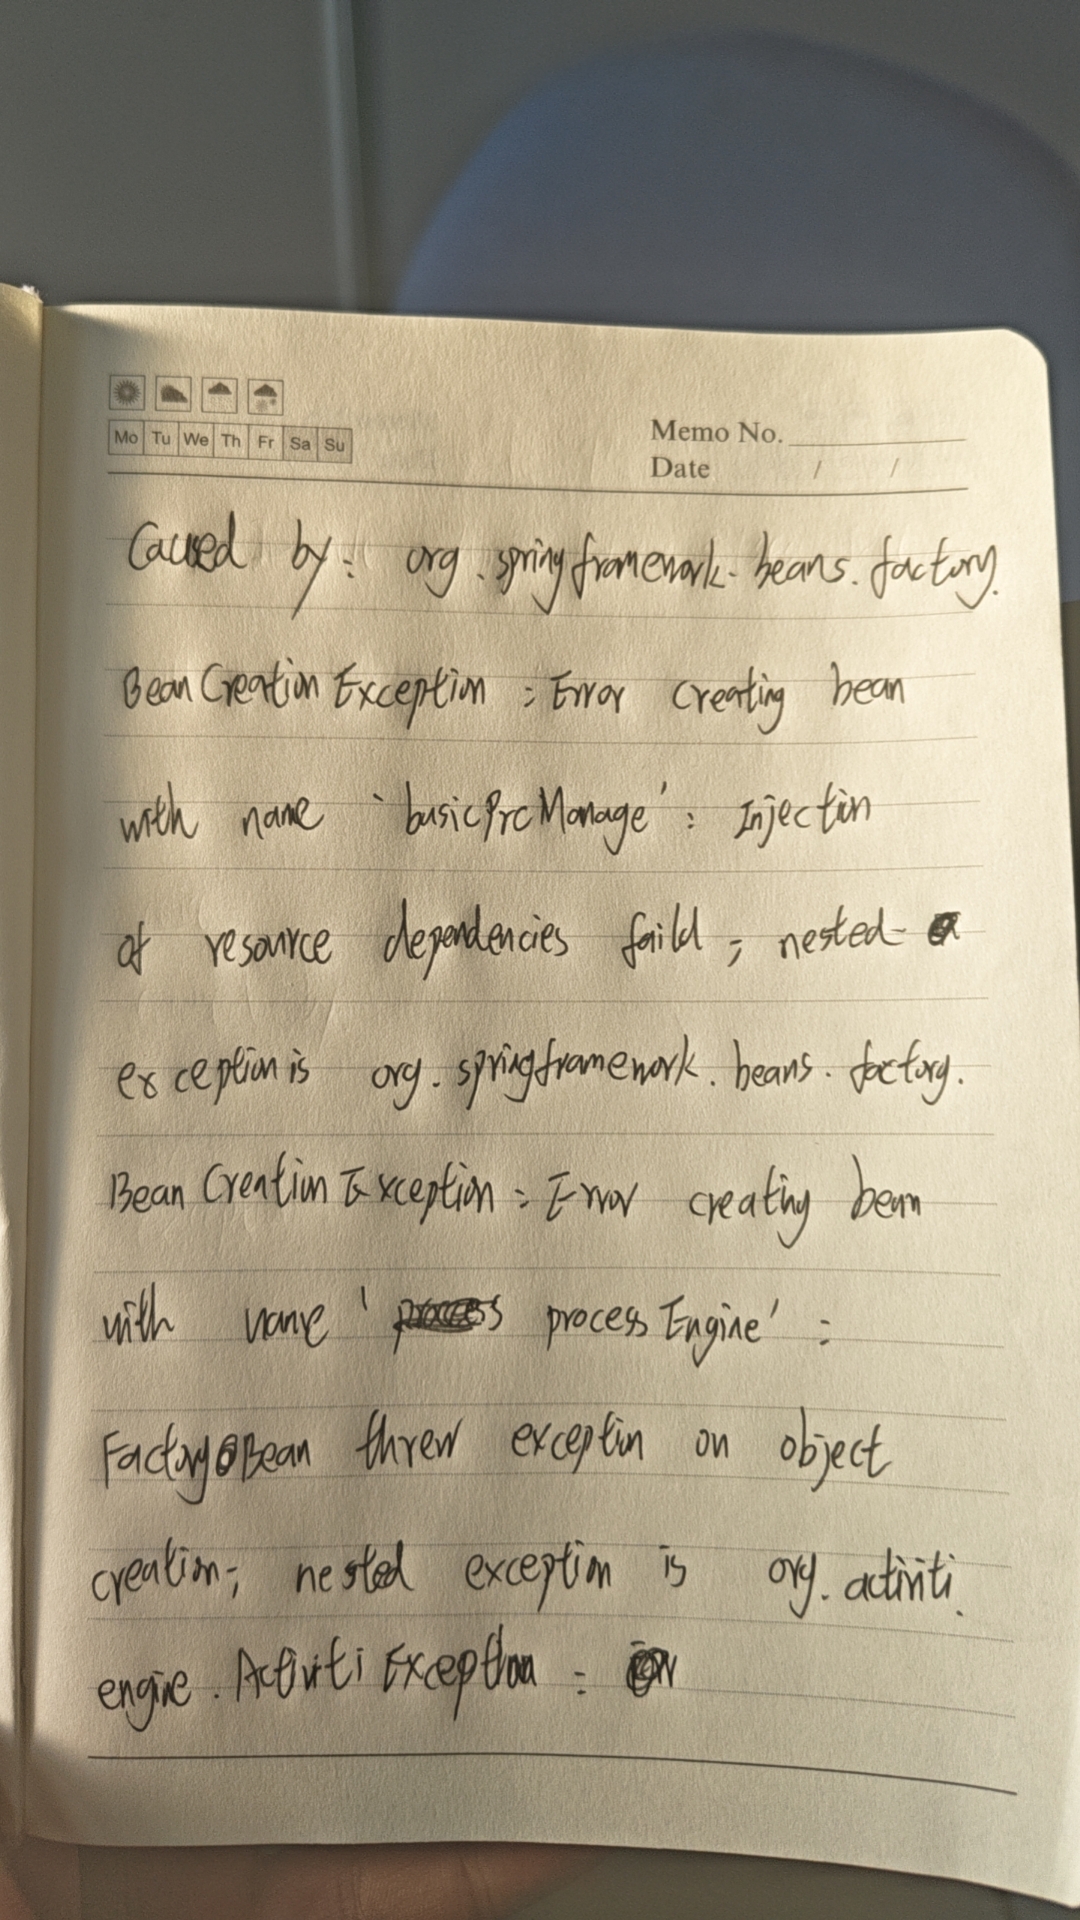 Mo Tu We Th Fr Sa Su
Memo No.
Date / /
Caused by: org.springframework.beans.factory.
BeanCreationException: Error creating bean
with name 'basicPrcManage': Injection
of resource dependencies faild; nested
exception is org.springframework.beans.factory.
BeanCreationException: Error creating bean
with name ' processEngine':
FactoryBean threw exception on object
creation; nested exception is org.activiti.
engine.ActivitiException: